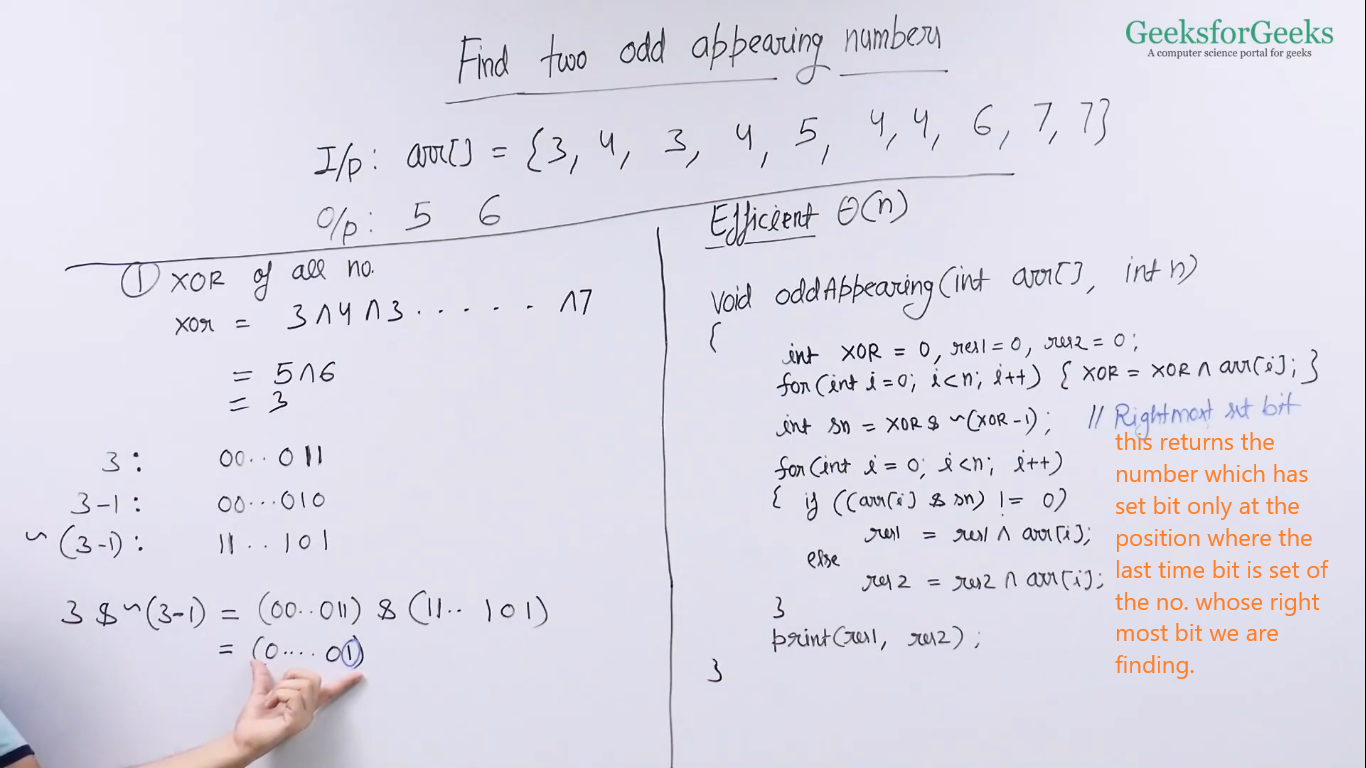 Find two odd appearing numbers
GeeksforGeeks
A computer science portal for geeks
I/p: arr[] = {3, 4, 3, 4, 5, 4, 4, 6, 7, 7}
O/p: 5 6
① XOR of all no.
xor = 3∧4∧3......∧7
= 5∧6
= 3
3: 00..011
3-1: 00...010
~(3-1): 11..101
3 & ~(3-1) = (00..011) & (11..101)
= (0....01)
Efficient θ(n)
void oddAppearing(int arr[], int n)
{
int XOR = 0, res1=0, res2=0;
for(int i=0; i<n; i++) { XOR = XOR ∧ arr[i]; }
int sn = XOR & ~(XOR-1); // Rightmost set bit
for(int i=0; i<n; i++)
{ if ((arr[i] & sn) != 0)
res1 = res1 ∧ arr[i];
else
res2 = res2 ∧ arr[i];
}
print(res1, res2);
}
this returns the
number which has
set bit only at the
position where the
last time bit is set of
the no. whose right
most bit we are
finding.